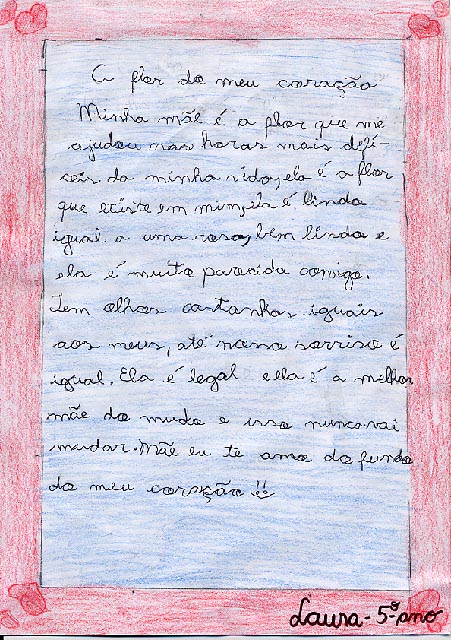 A flor do meu coração
Minha mãe é a flor que me
ajudou nas horas mais defi-
ceis da minha vida, ela é a flor
que existe em mim, ela é linda
igual a uma rosa, bem linda e
ela é muito parecida comigo.
Tem olhos castanhos iguais
aos meus, até nosso sorriso é
igual. Ela é legal e ela é a melhor
mãe do mundo e isso nunca vai
mudar. Mãe eu te amo do fundo
do meu coração!!
Laura - 5º ano